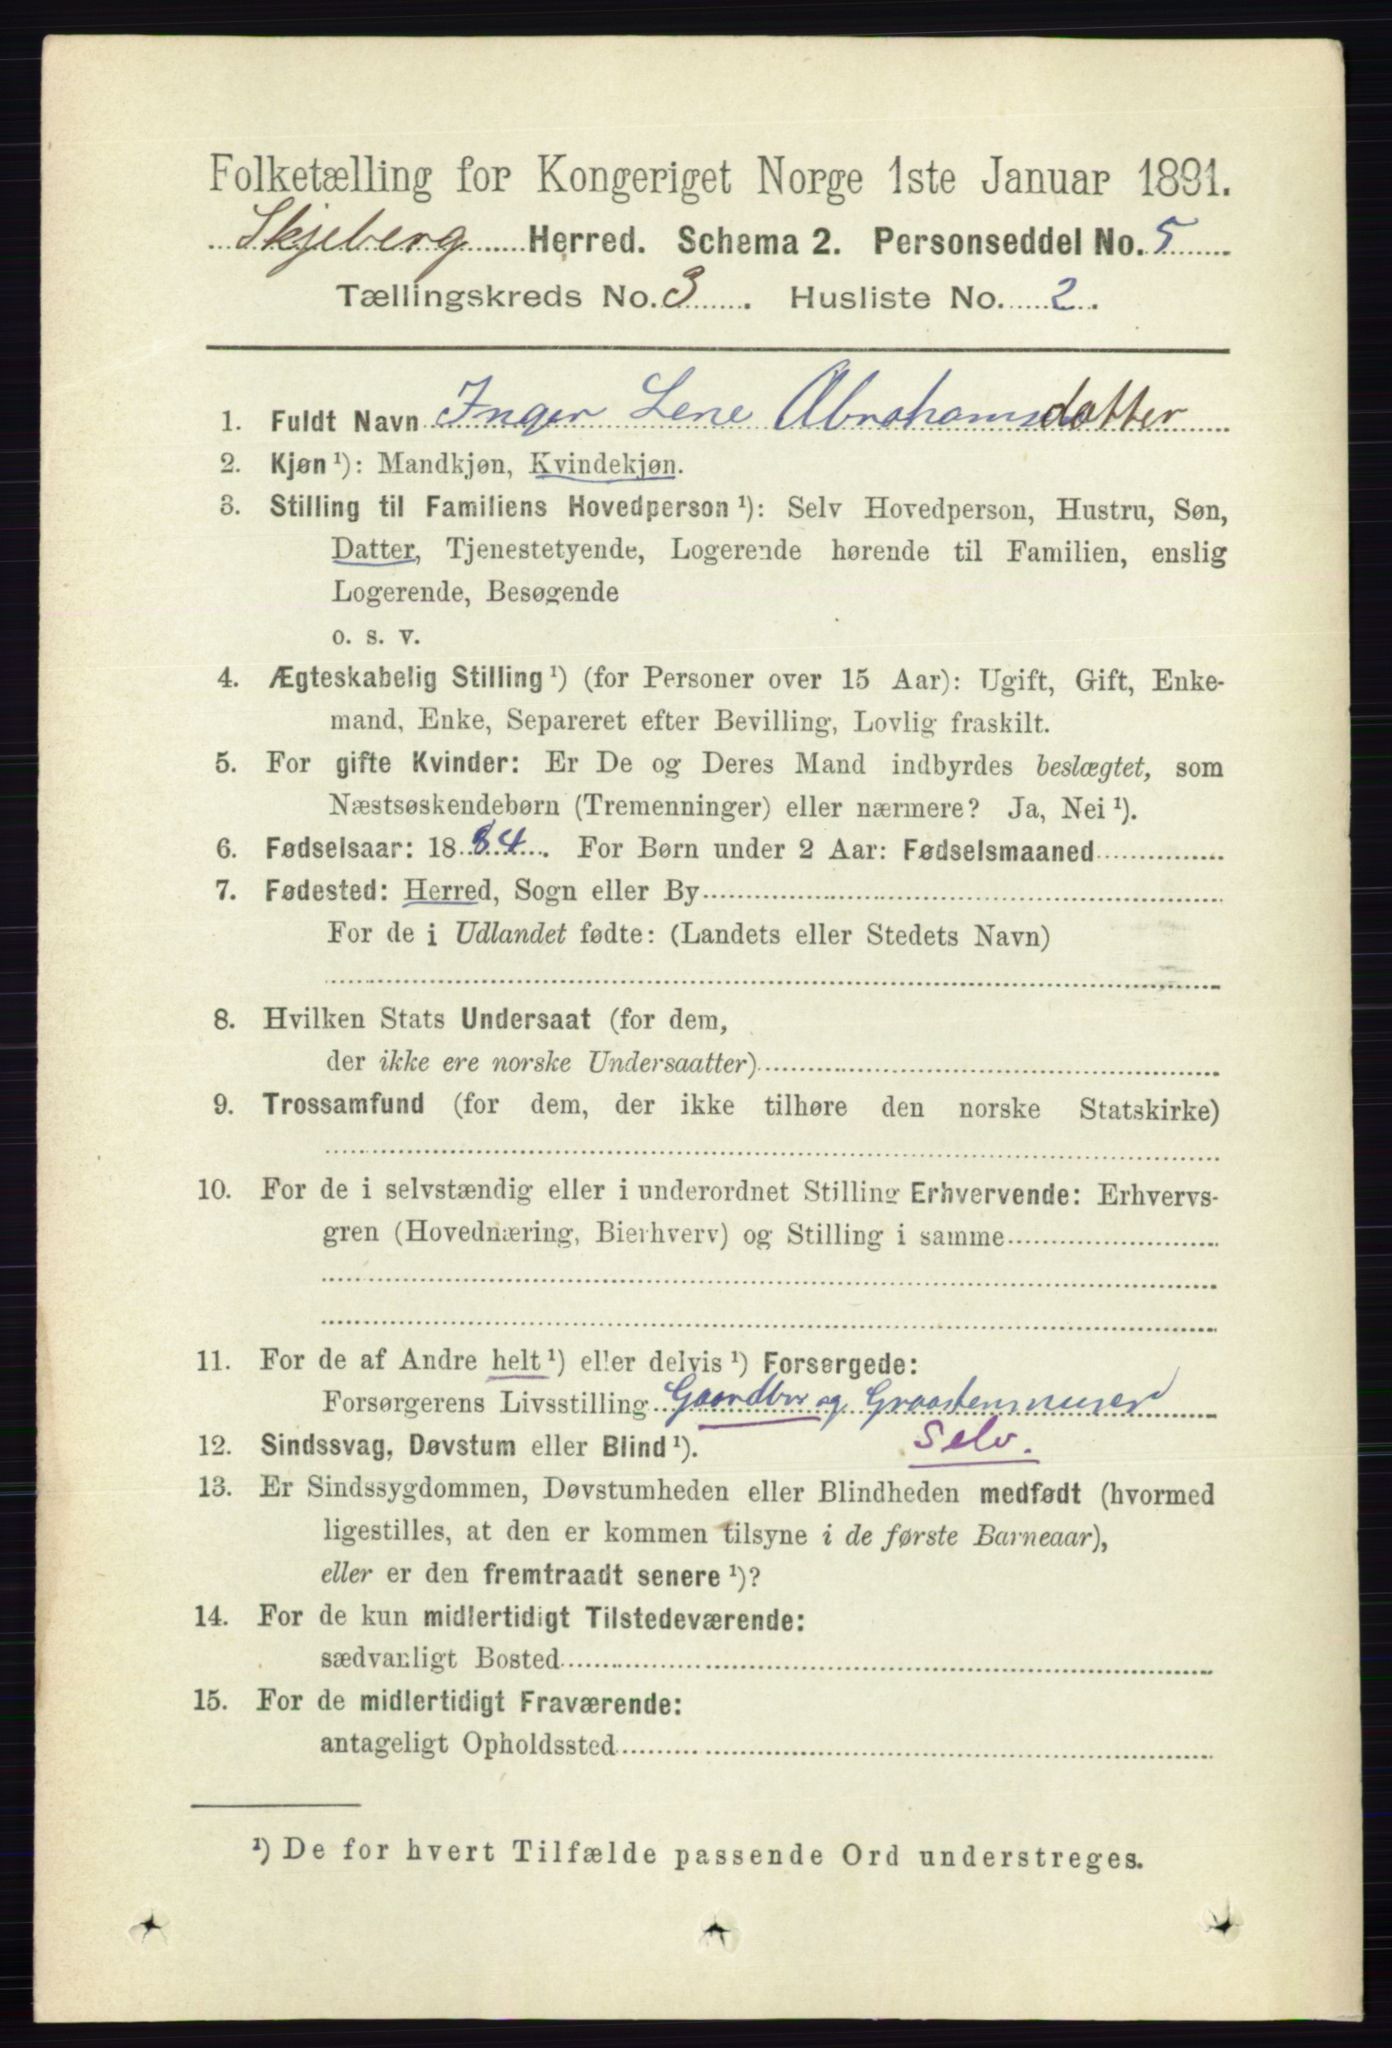 Folketælling for Kongeriget Norge 1ste Januar 1891.
Skjeberg Herred. Schema 2. Personseddel No. 5
Tællingskreds No. 3. Husliste No. 2.
1. Fuldt Navn Inger Lene Abrahamsdatter
2. Kjøn ¹): Mandkjøn, Kvindekjøn.
3. Stilling til Familiens Hovedperson ¹): Selv Hovedperson, Hustru, Søn,
Datter, Tjenestetyende, Logerende hørende til Familien, enslig
Logerende, Besøgende
o. s. v.
4. Ægteskabelig Stilling ¹) (for Personer over 15 Aar): Ugift, Gift, Enke-
mand, Enke, Separeret efter Bevilling, Lovlig fraskilt.
5. For gifte Kvinder: Er De og Deres Mand indbyrdes beslægtet, som
Næstsøskendebørn (Tremenninger) eller nærmere? Ja, Nei ¹).
6. Fødselsaar: 1884. For Børn under 2 Aar: Fødselsmaaned
7. Fødested: Herred, Sogn eller By
For de i Udlandet fødte: (Landets eller Stedets Navn)
8. Hvilken Stats Undersaat (for dem,
der ikke ere norske Undersaatter)
9. Trossamfund (for dem, der ikke tilhøre den norske Statskirke)
10. For de i selvstændig eller i underordnet Stilling Erhvervende: Erhvervs-
gren (Hovednæring, Bierhverv) og Stilling i samme
11. For de af Andre helt ¹) eller delvis ¹) Forsørgede:
Forsørgerens Livsstilling Gaardbr og Graastensmurer
12. Sindssvag, Døvstum eller Blind ¹). Selv.
13. Er Sindssygdommen, Døvstumheden eller Blindheden medfødt (hvormed
ligestilles, at den er kommen tilsyne i de første Barneaar),
eller er den fremtraadt senere ¹)?
14. For de kun midlertidigt Tilstedeværende:
sædvanligt Bosted
15. For de midlertidigt Fraværende:
antageligt Opholdssted
¹) De for hvert Tilfælde passende Ord understreges.